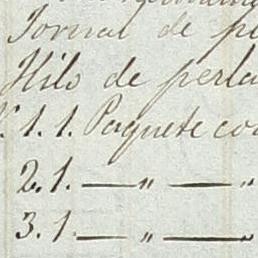 Jornal de pe
Hilo de perla
N.º 1. 1. Paquete co
2. 1. — " — "
3. 1. — " — "